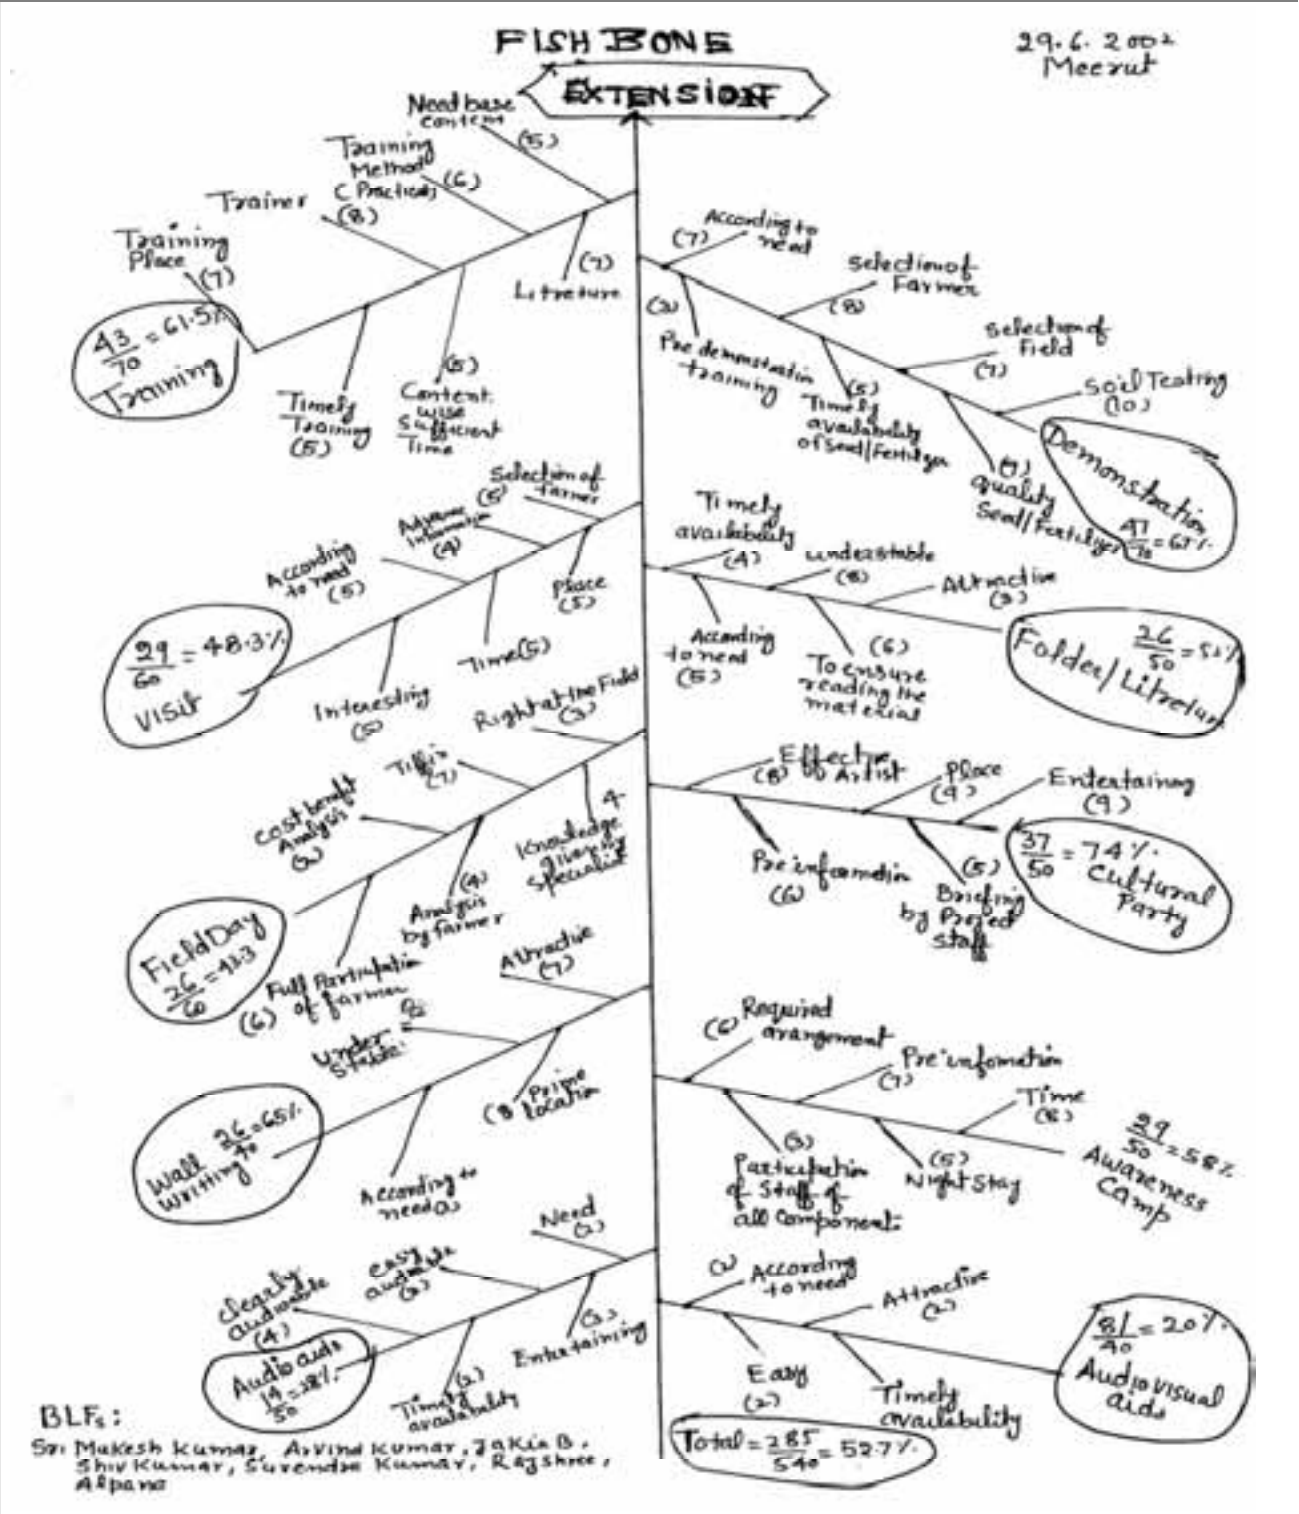 FISH BONE
29.6.2002
Meerut
EXTENSION
Need base
content
(5)
Training
Method
(Practical)
(6)
Trainer
(8)
Training
Place
(7)
(7)
Litreture
43/70 = 61.5%
Training
Timely
Training
(5)
(5)
Content
wise
Sufficient
Time
According to
need
(7)
Selection of
Farmer
(8)
Selection of
Field
(7)
Soil Testing
(10)
Pre demonstration
training
(5)
Timely
availability
of Seed/Fertilizer
quality
Seed/Fertilizer
Demonstration
47/70 = 67%
Selection of
farmer
(5)
Advance
Information
(4)
According
to need
(5)
Place
(5)
Time (5)
Interesting
(5)
29/60 = 48.3%
Visit
Timely
availability
(4)
understable
(8)
Attractive
(3)
According
to need
(5)
(6)
To ensure
reading the
material
26/50 = 52%
Folder/Litreture
Right at the Field
(3)
Tiffin
(7)
Cost benefit
Analysis
4
Knowledge
given by
Specialist
(4)
Analysis
by farmer
Full Participation
of farmer
(6)
Field Day
26/60 = 43.3
Effective
Artist
(8)
Place
(9)
Entertaining
(9)
Pre information
(6)
(5)
Briefing
by Project
Staff
37/50 = 74%
Cultural
Party
Attractive
(7)
Under
Stable
(8 Prime
Location
According to
need
Wall
Writting
26/40 = 65%
Required
arangement
(6)
Pre infomation
(7)
Time
(8)
(3)
Participation
of Staff of
all Component
(5)
Night Stay
29/50 = 58%
Awareness
Camp
Need
(2)
easy
audiable
clearly
audioable
(4)
Entertaining
(2)
Timely
availability
Audio aids
14/50 = 28%
According
to need
Attractive
(2)
Easy
(2)
Timely
availability
8/40 = 20%
Audiovisual
aids
Total = 285/540 = 52.7%
BLFs:
Sri Mukesh Kumar, Arvind Kumar, Jakia B.
Shiv Kumar, Surendra Kumar, Rajshree,
Alpana